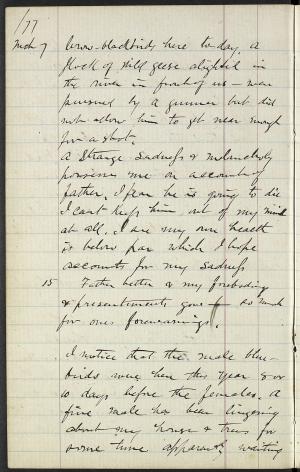 177
Mch 7 Crow-blackbirds here to-day. A
flock of wild geese alighted in
the river in front of us – were
pursued by a gunner but did
not allow him to get near enough
for a shot.
A strange sadness & melancholy
possesses me on account of
Father. I fear he is going to die
I can't keep him out of my mind
at all. I am my own health
is below par which I hope
accounts for my sadness
15 Father better & my foreboding
& presentiments gone – so much
for ones forewarnings.
I notice that the male blue-
birds were here this year 8 or
10 days before the females. A
fine male has been lingering
about my house & trees for
some time apparently waiting